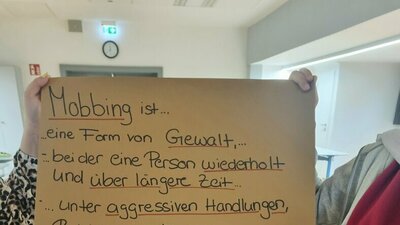 Mobbing ist...
...eine Form von Gewalt,...
... bei der eine Person wiederholt
und über längere Zeit...
... unter aggressiven Handlungen,